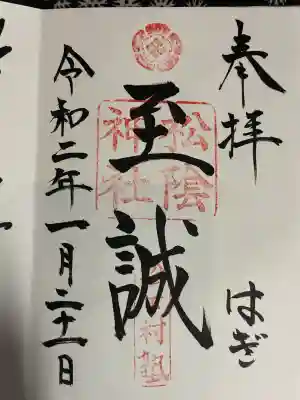 奉拝
はぎ
至誠
松陰
神社
村塾
令和二年一月二十一日